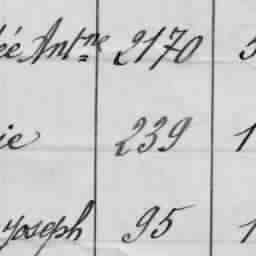 ée Ant.ne 2170 5
ie 239 1
Joseph 95 1